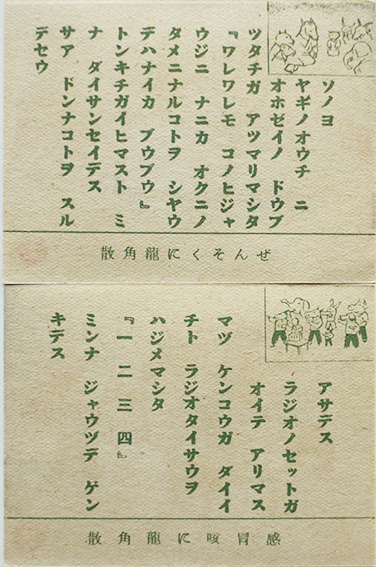 ソノヨ
ヤギノオウチ ニ
オホゼイノ ドウブ
ツタチガ アツマリマシタ
『ワレワレモ コノヒジャ
ウジニ ナニカ オクニノ
タメニナルコトヲ シヤウ
デハナイカ ブウブウ』
トンキチガイヒマスト ミ
ナ ダイサンセイデス
サア ドンナコトヲ スル
デセウ
ぜんそくに龍角散
アサデス
ラジオノセットガ
オイテ アリマス
マヅ ケンコウガ ダイイ
チト ラジオタイサウヲ
ハジメマシタ
『一 二 三 四』
ミンナ ジャウヅデ ゲン
キデス
感冒咳に龍角散